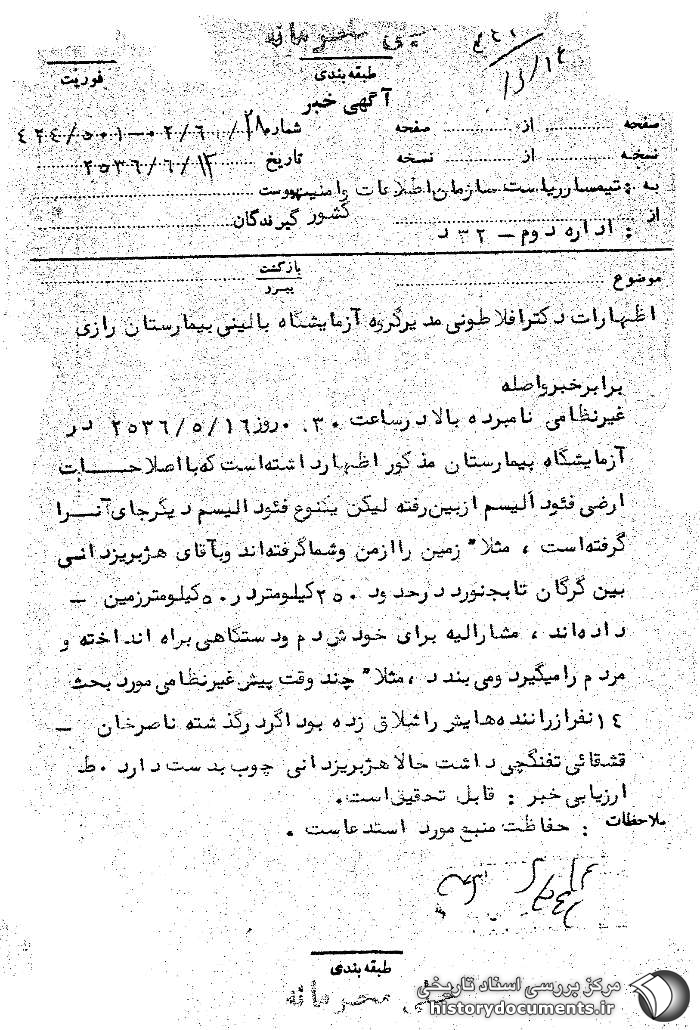 خیلی محرمانه
طبقه بندی
فوریت
آگهی خبر
صفحه از صفحه شماره ۴۲۴/۵۰۱-۰۲/۶/۲۸
نسخه از نسخه تاریخ ۲۵۳۶/۶/۱۲
به : تیمسار ریاست سازمان اطلاعات و امنیت کشور پیوست
از : اداره دوم - ۳۲ د گیرندگان
موضوع بازگشت پیرو
اظهارات دکتر افلاطونی مدیر گروه آزمایشگاه بالینی بیمارستان رازی
برابر خبر واصله
غیرنظامی نامبرده بالا در ساعت ۰۰۳۰ روز ۲۵۳۶/۵/۱۶ در
آزمایشگاه بیمارستان مذکور اظهار داشته است که با اصلاحات
ارضی فئودالیسم از بین رفته لیکن یکنوع فئودالیسم دیگر جای آنرا
گرفته است ، مثلا" زمین را از من و شما گرفته اند و بآقای هژبر یزدانی
بین گرگان تا بجنورد در حدود ۲۵۰ کیلومتر در ۵۰ کیلومتر زمین -
داده اند ، مشارالیه برای خودش دم و دستگاهی براه انداخته و
مردم را میگیرد و می بندد ، مثلا" چند وقت پیش غیرنظامی مورد بحث
۱۴ نفر از راننده هایش را شلاق زده بود اگر در گذشته ناصرخان -
قشقائی تفنگچی داشت حالا هژبر یزدانی چوب بدست دارد ۰ ط
ارزیابی خبر : قابل تحقیق است.
ملاحظات : حفاظت منبع مورد استدعاست .
طبقه بندی
خیلی محرمانه
مرکز بررسی اسناد تاریخی
historydocuments.ir